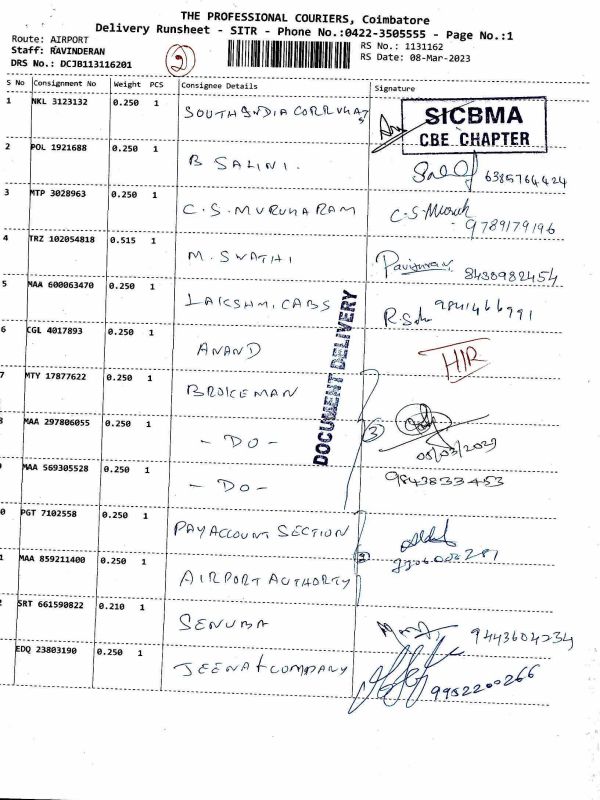 THE PROFESSIONAL COURIERS, Coimbatore
Delivery Runsheet - SITR - Phone No.:0422-3505555 - Page No.:1
Route: AIRPORT
Staff: RAVINDERAN
DRS No.: DCJB113116201
2
RS No.: 1131162
RS Date: 08-Mar-2023
S No Consignment No Weight PCS Consignee Details Signature
1 NKL 3123132 0.250 1 SOUTH INDIA CORRUGATS
SICBMA
CBE CHAPTER
2 POL 1921688 0.250 1 B SALINI. 6385764424
3 MTP 3028963 0.250 1 C.S.MURUHARAM C-S-
9789179196
4 TRZ 102054818 0.515 1 M. SWATHI 8438982454
5 MAA 600063470 0.250 1 LAKSHMI CABS R.S 9841466991
6 CGL 4017893 0.250 1 ANAND HIR
DOCUMENT DELIVERY
7 MTY 17877622 0.250 1 BROKEMAN
8 MAA 297806055 0.250 1 - DO - 3
08/03/2023
MAA 569305528 0.250 1 - DO - 9843833453
0 PGT 7102558 0.250 1 PAY ACCOUNT SECTION
1 MAA 859211400 0.250 1 AIRPORT AUTHORTY 2
2 SRT 661590822 0.210 1 SENUBA 9443604234
EDQ 23803190 0.250 1 JEENA + COMPANY 9952200266